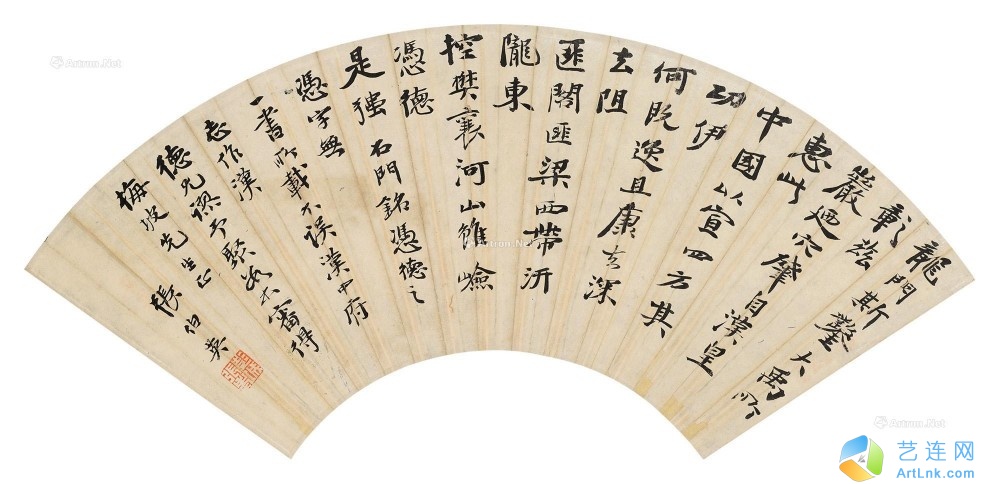 龍門斯鑿大禹所
彰茲
巖迺穴肇自漢皇
惠此
中國以宣四方其
功伊
何既逸且康去深
去阻
匪閣匪梁西帶汧
隴東
控樊襄河山雖嶮
憑德
是强 石門銘憑德之
憑字無
一書所載不誤漢中府
志作漢
德尤謬不審得
梅坡先生正
張伯英
Artron.Net
Artron.Net
Artron.Net
艺连网
ArtLnk.com